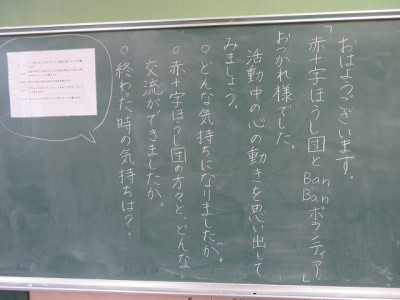 おはようございます。
「赤十字ほうし団とBan
Banボランティア」
おつかれ様でした。
活動中の心の動きを思い出して
みましょう。
○どんな気持ちになりましたか。
○赤十字ほうし団の方々と、どんな
交流ができましたか。
○終わた時の気持ちは？